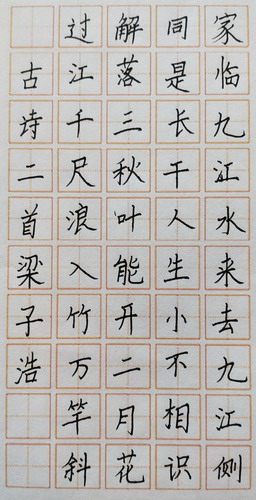 家临九江水来去九江侧
同是长干人生小不相识
解落三秋叶能开二月花
过江千尺浪入竹万竿斜
古诗二首梁子浩